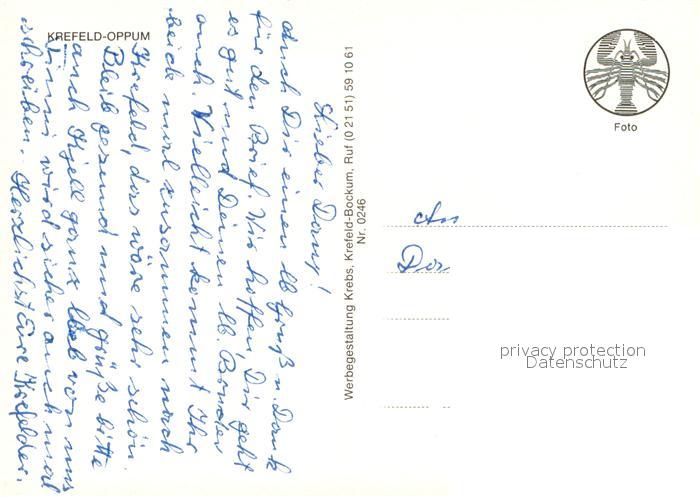 KREFELD-OPPUM
Lieber Dany!
Auch Dir einen lb. Gruß u. Dank
für den Brief. Wir hoffen, Dir geht
es gut und Deinen lb. Bruder
auch. Vielleicht kommt Ihr
beide mal zusammen nach
Krefeld, das wäre sehr schön.
Bleib gesund und grüße bitte
auch Kjell ganz lieb von uns
wird sicher auch mal
schreiben. Herzlichst Eure Krefelder.
Werbegestaltung Krebs, Krefeld-Bockum, Ruf (0 21 51) 59 10 61
Nr. 0246
Foto
An
privacy protection
Datenschutz